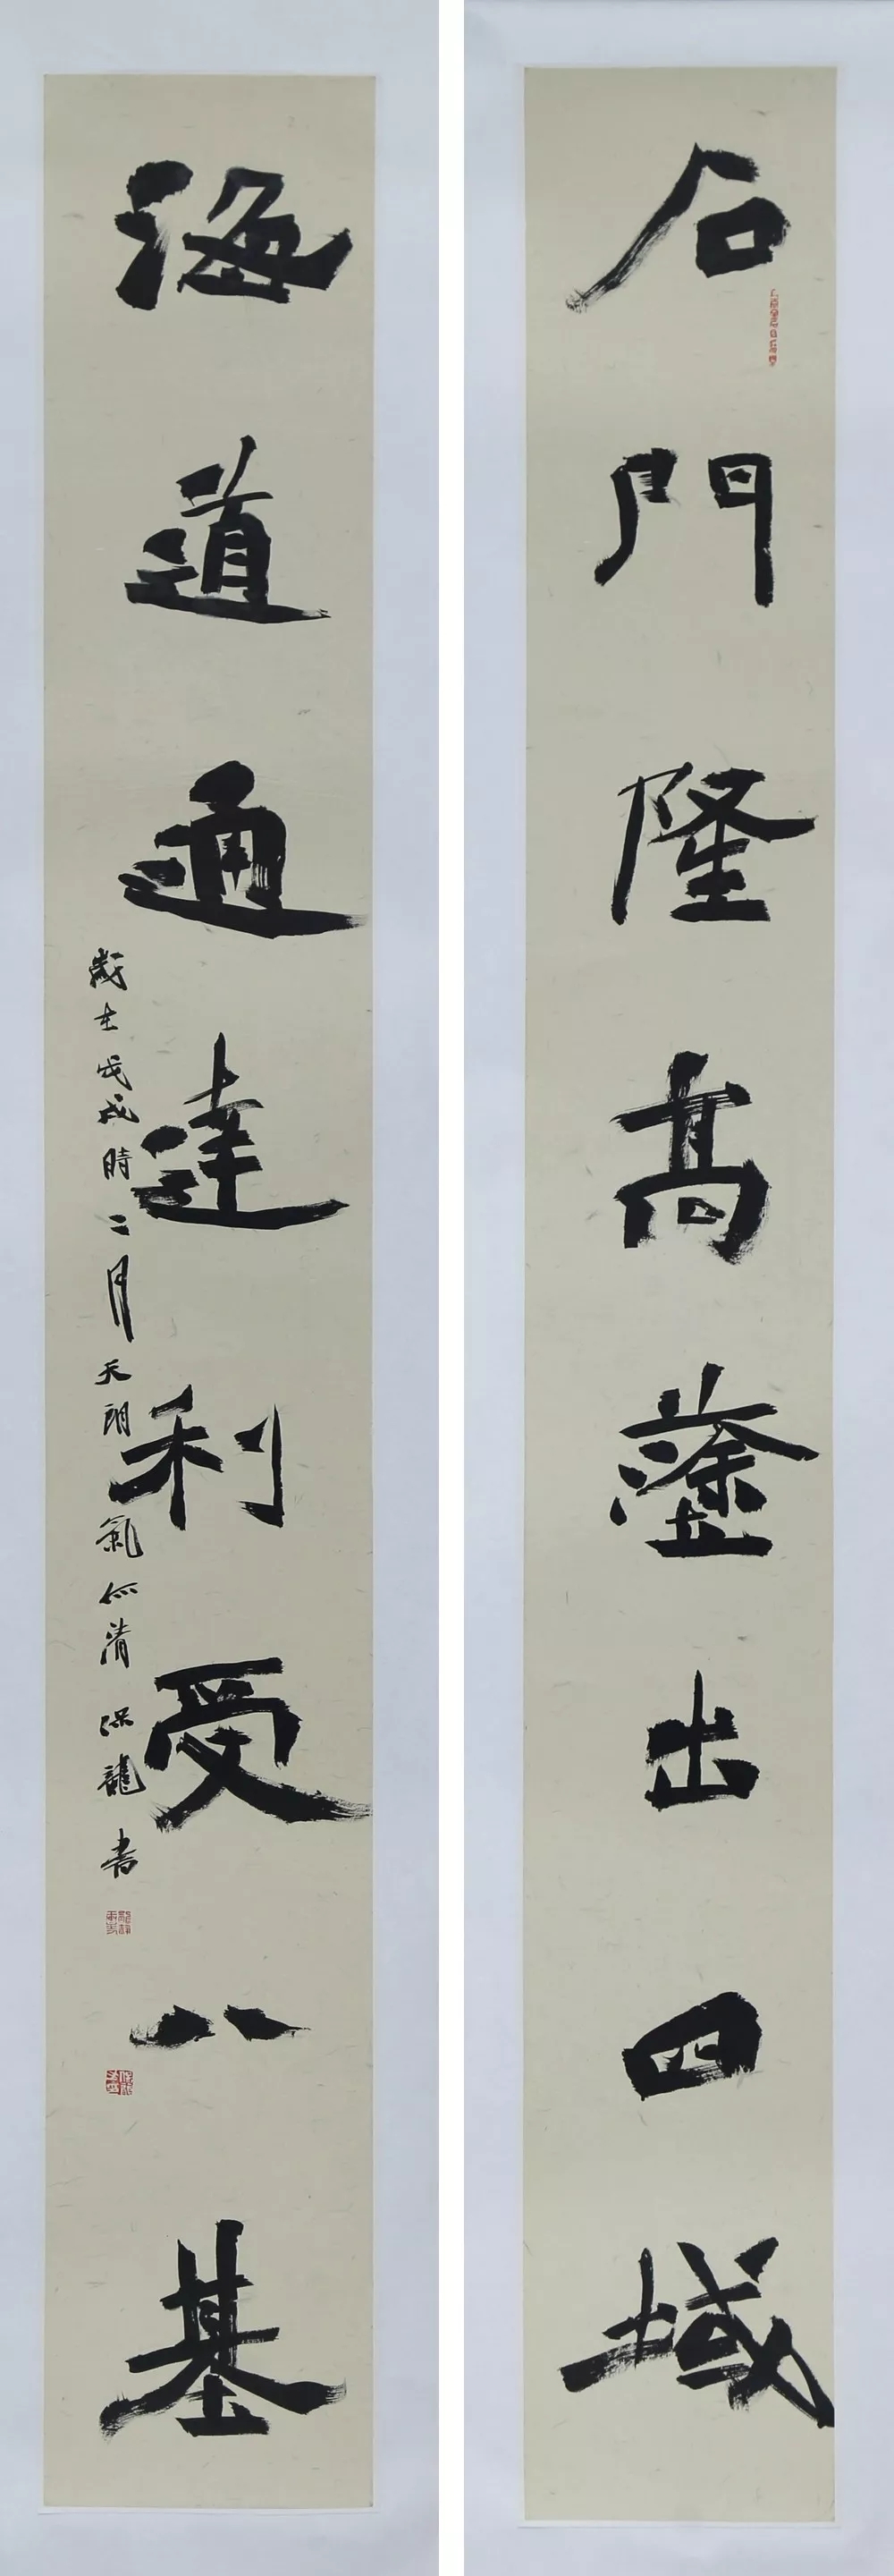 石門隆高蓥出四域
海道通達利受八基
歲在戊戌時二月天朗氣清保龍書